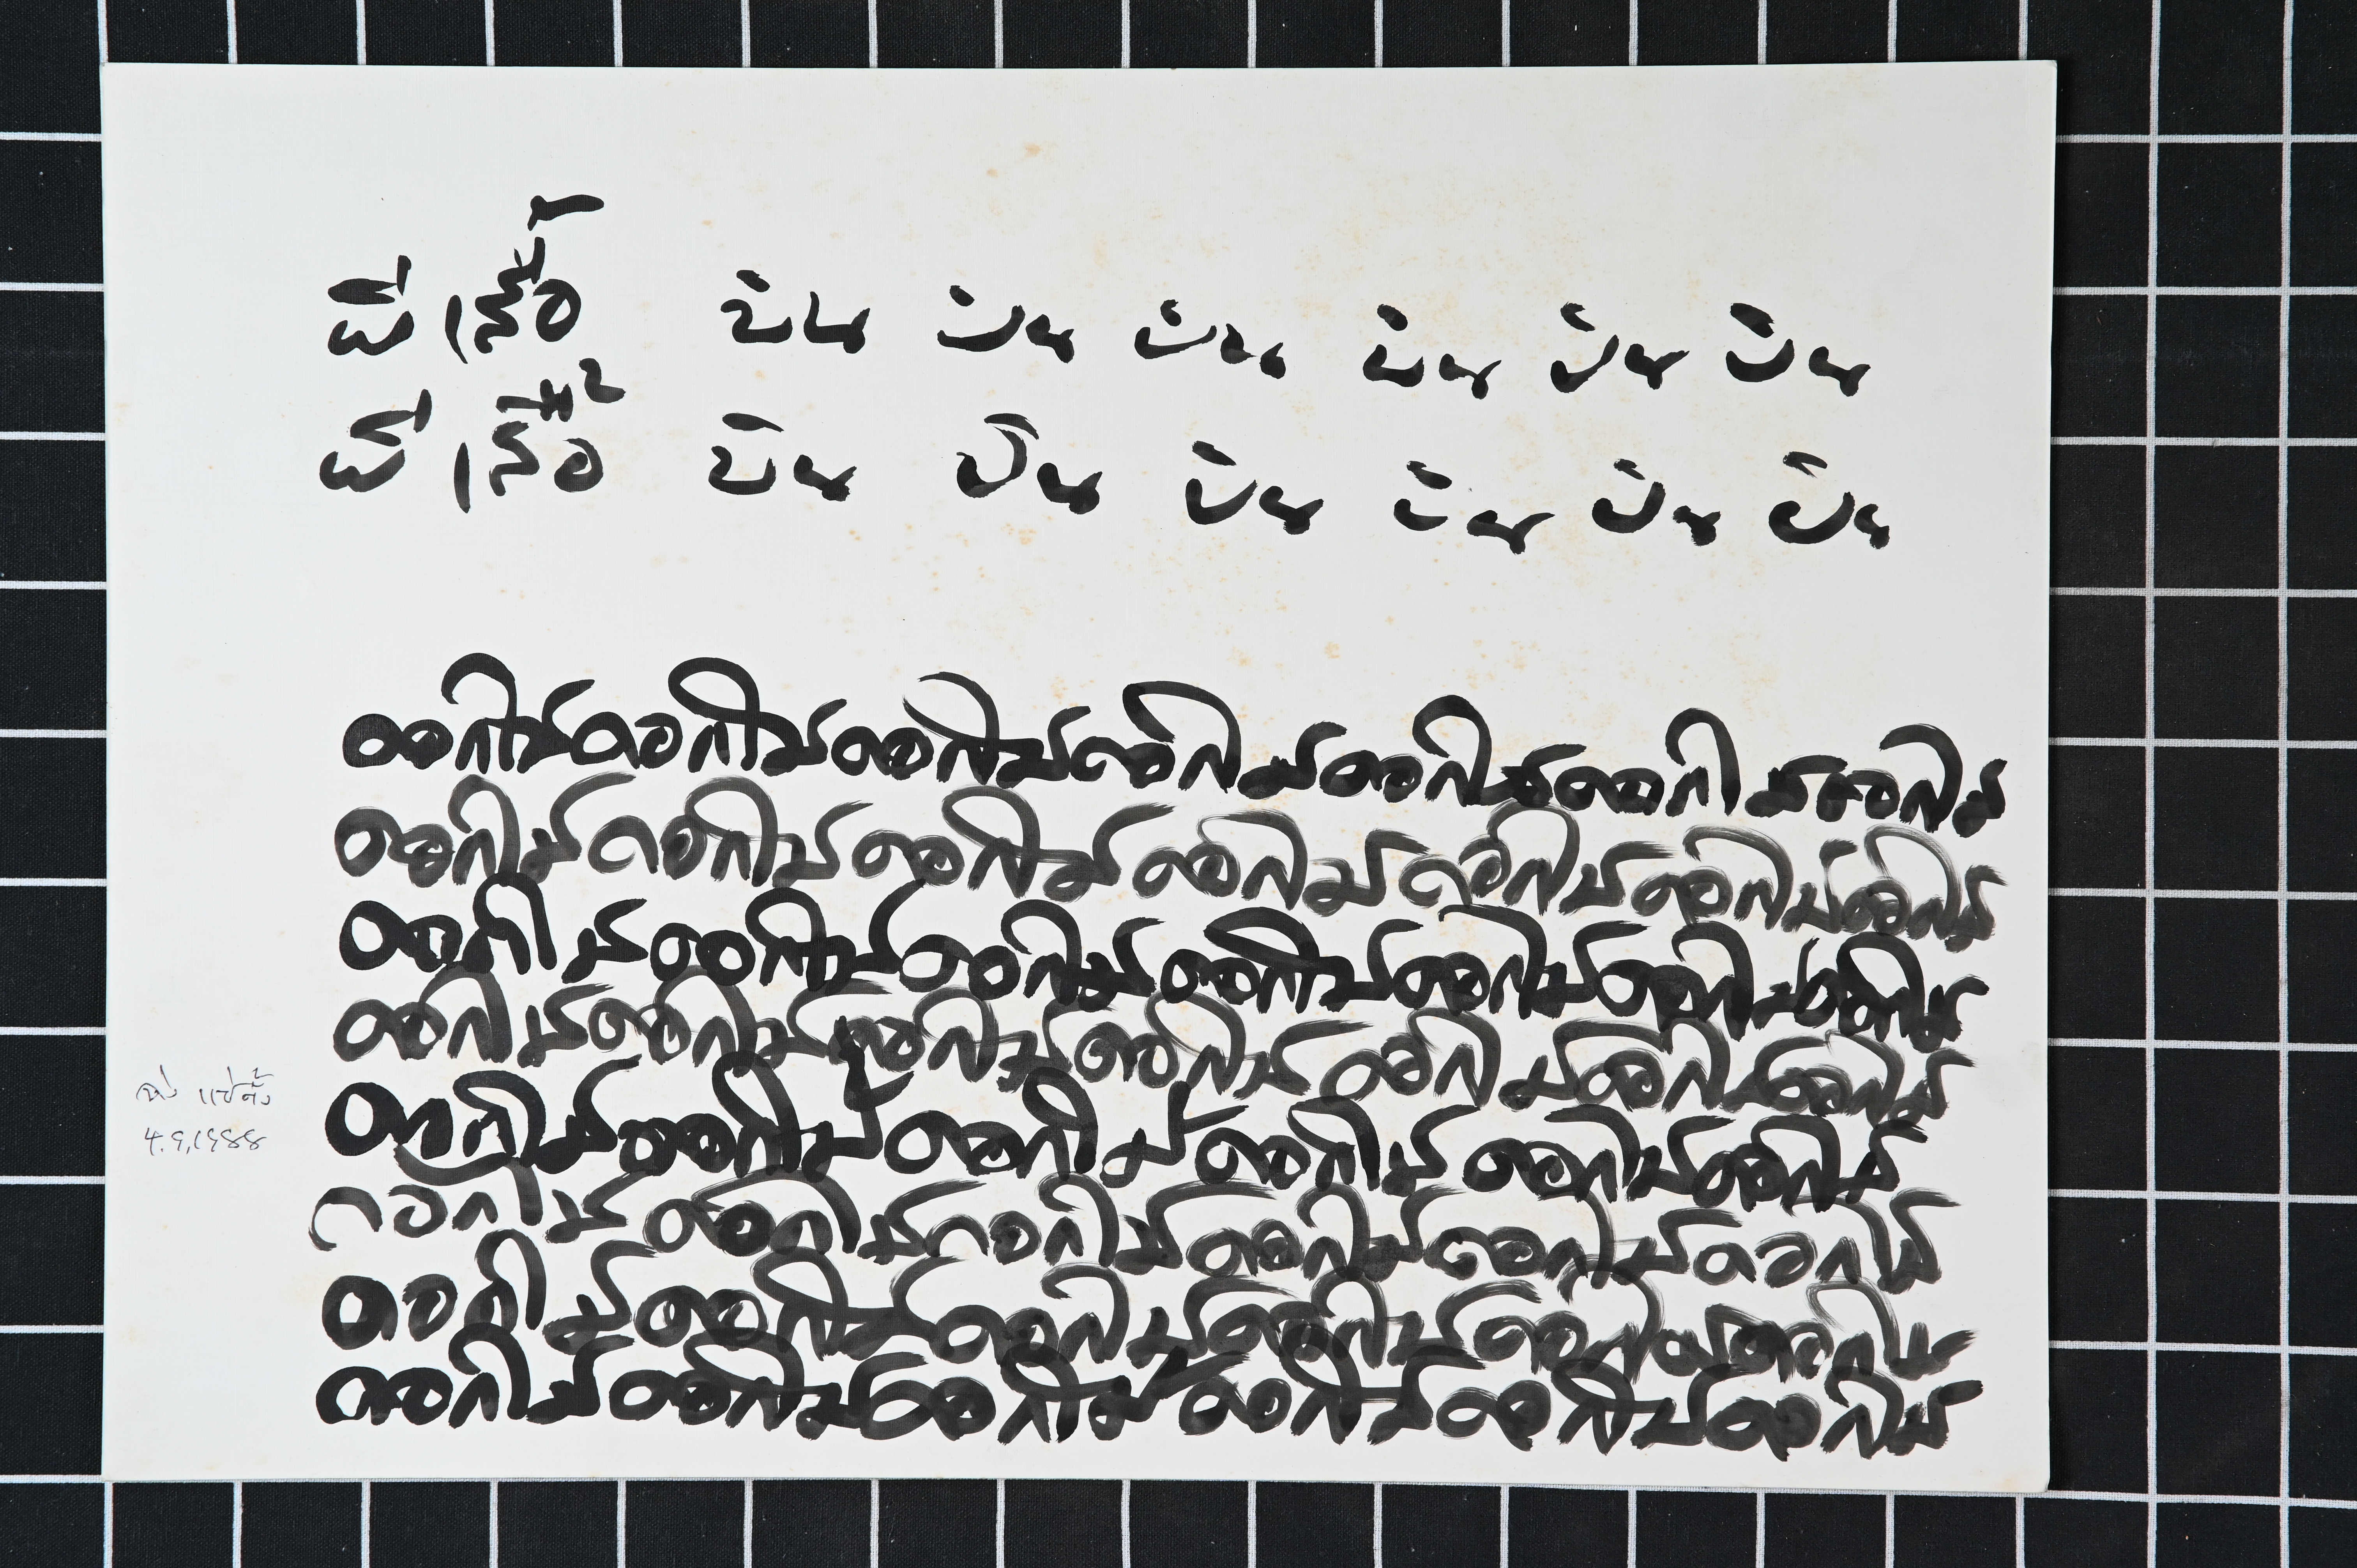 ผีเสื้อ บิน บิน บิน บิน บิน บิน
ผีเสื้อ บิน บิน บิน บิน บิน บิน
ดอกไม้ดอกไม้ดอกไม้ดอกไม้ดอกไม้ดอกไม้ดอกไม้
ดอกไม้ดอกไม้ดอกไม้ดอกไม้ดอกไม้ดอกไม้ดอกไม้
ดอกไม้ดอกไม้ดอกไม้ดอกไม้ดอกไม้ดอกไม้ดอกไม้
ดอกไม้ดอกไม้ดอกไม้ดอกไม้ดอกไม้ดอกไม้ดอกไม้
ดอกไม้ดอกไม้ดอกไม้ดอกไม้ดอกไม้ดอกไม้
ดอกไม้ดอกไม้ดอกไม้ดอกไม้ดอกไม้ดอกไม้
ดอกไม้ดอกไม้ดอกไม้ดอกไม้ดอกไม้ดอกไม้
ดอกไม้ดอกไม้ดอกไม้ดอกไม้ดอกไม้ดอกไม้
จ่าง แซ่ตั้ง
4.9.1988